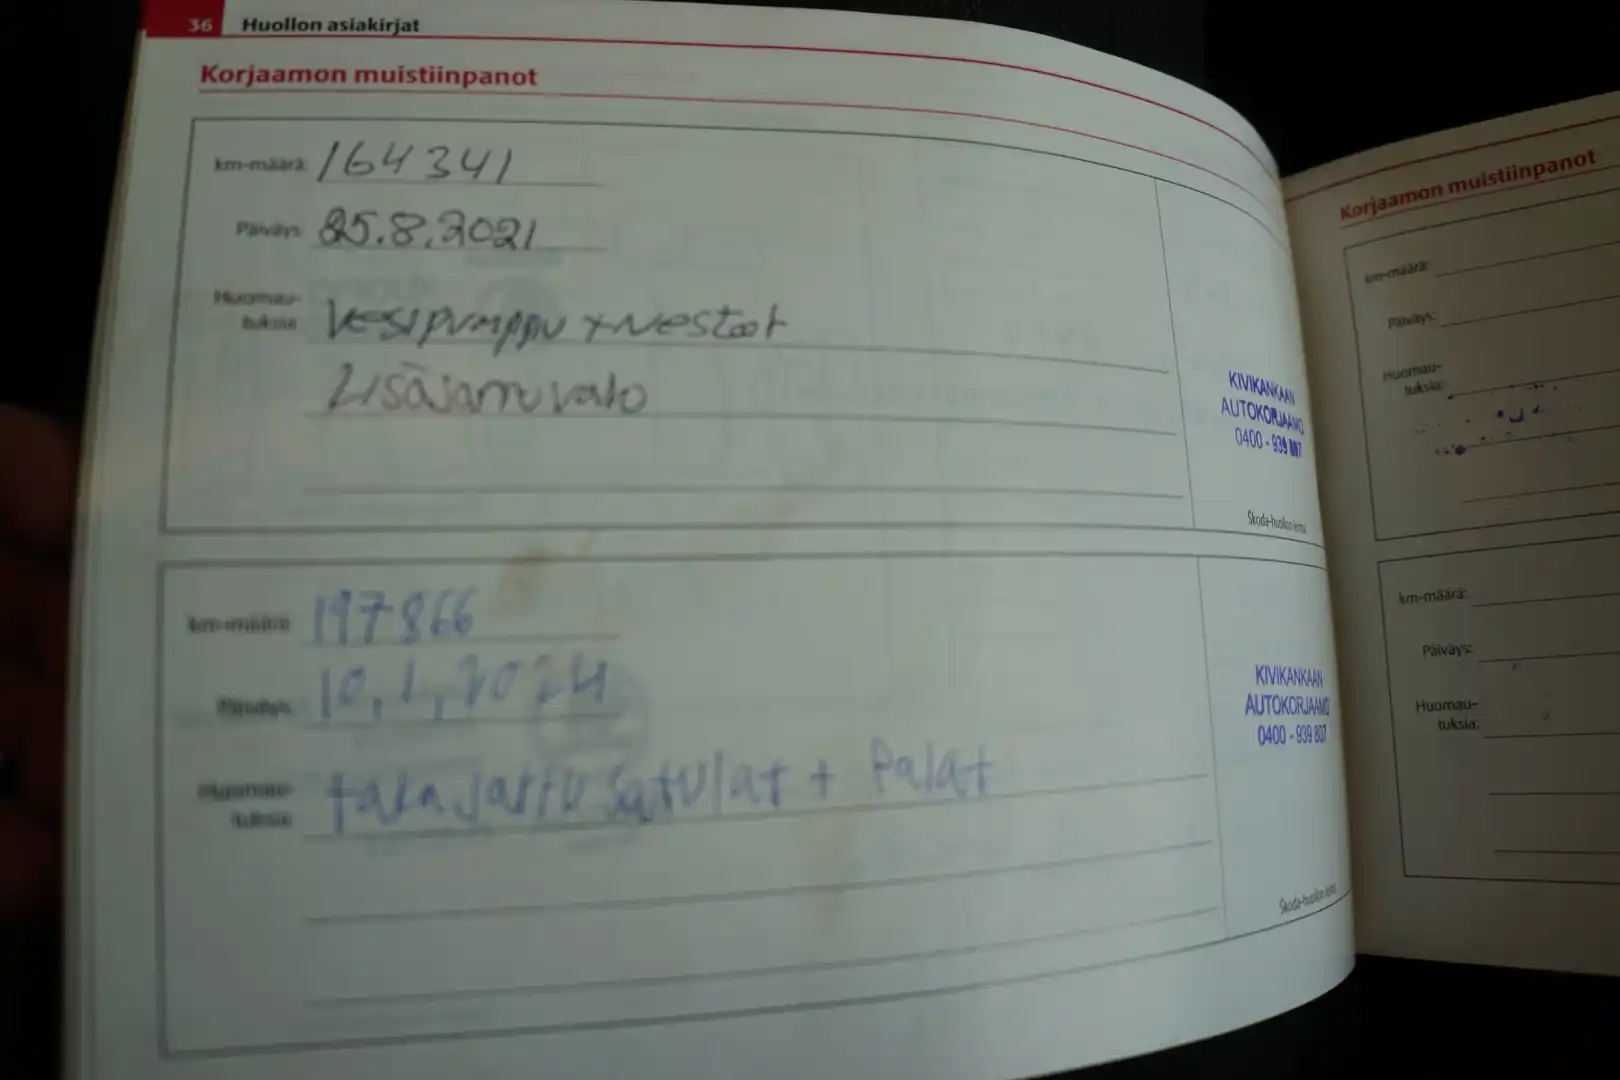 36 Huollon asiakirjat
Korjaamon muistiinpanot
km-määrä: 164341
Päiväys: 25.8.2021
Huomau-
tuksia: Vesipumppu + Nesteet
Lisäjarruvalo
KIVIKANKAAN
AUTOKORJAAMO
0400 - 939 807
Škoda-huollon leima
km-määrä: 197866
Päiväys: 10.1.2024
Huomau-
tuksia: takajarru satulat + Palat
KIVIKANKAAN
AUTOKORJAAMO
0400 - 939 807
Škoda-huollon leima
Korjaamon muistiinpanot
km-määrä:
Päiväys:
Huomau-
tuksia:
km-määrä:
Päiväys:
Huomau-
tuksia: